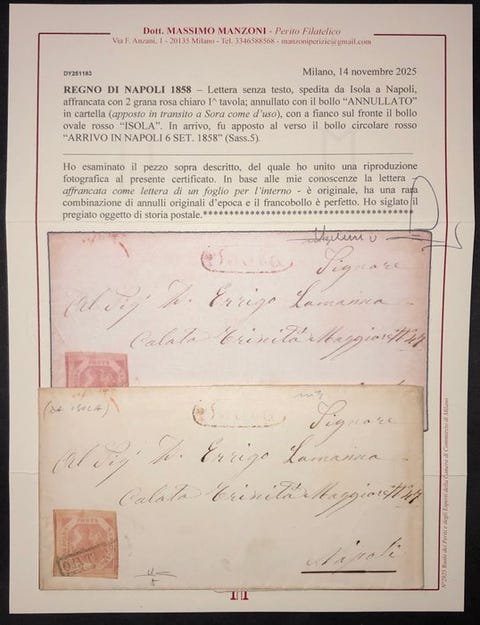 Dott. MASSIMO MANZONI - Perito Filatelico
Via F. Anzani, 1 - 20135 Milano - Tel. 3346588568 - manzoniperizie@gmail.com
DY251183
Milano, 14 novembre 2025
REGNO DI NAPOLI 1858 – Lettera senza testo, spedita da Isola a Napoli,
affrancata con 2 grana rosa chiaro I^ tavola; annullato con il bollo "ANNULLATO"
in cartella (apposto in transito a Sora come d'uso), con a fianco sul fronte il bollo
ovale rosso "ISOLA". In arrivo, fu apposto al verso il bollo circolare rosso
"ARRIVO IN NAPOLI 6 SET. 1858" (Sass.5).
Ho esaminato il pezzo sopra descritto, del quale ho unito una riproduzione
fotografica al presente certificato. In base alle mie conoscenze la lettera -
affrancata come lettera di un foglio per l'interno - è originale, ha una rara
combinazione di annulli originali d'epoca e il francobollo è perfetto. Ho siglato il
pregiato oggetto di storia postale.********************************
Signore
Al Sig. D. Errigo Lamanna
Calata Trinità Maggiore N 44
(DA ISOLA)
Signore
Al Sig. D. Errigo Lamanna
Calata Trinità Maggiore N 44
Napoli
N°2925 Ruolo dei Periti e degli Esperti della Camera di Commercio di Milano